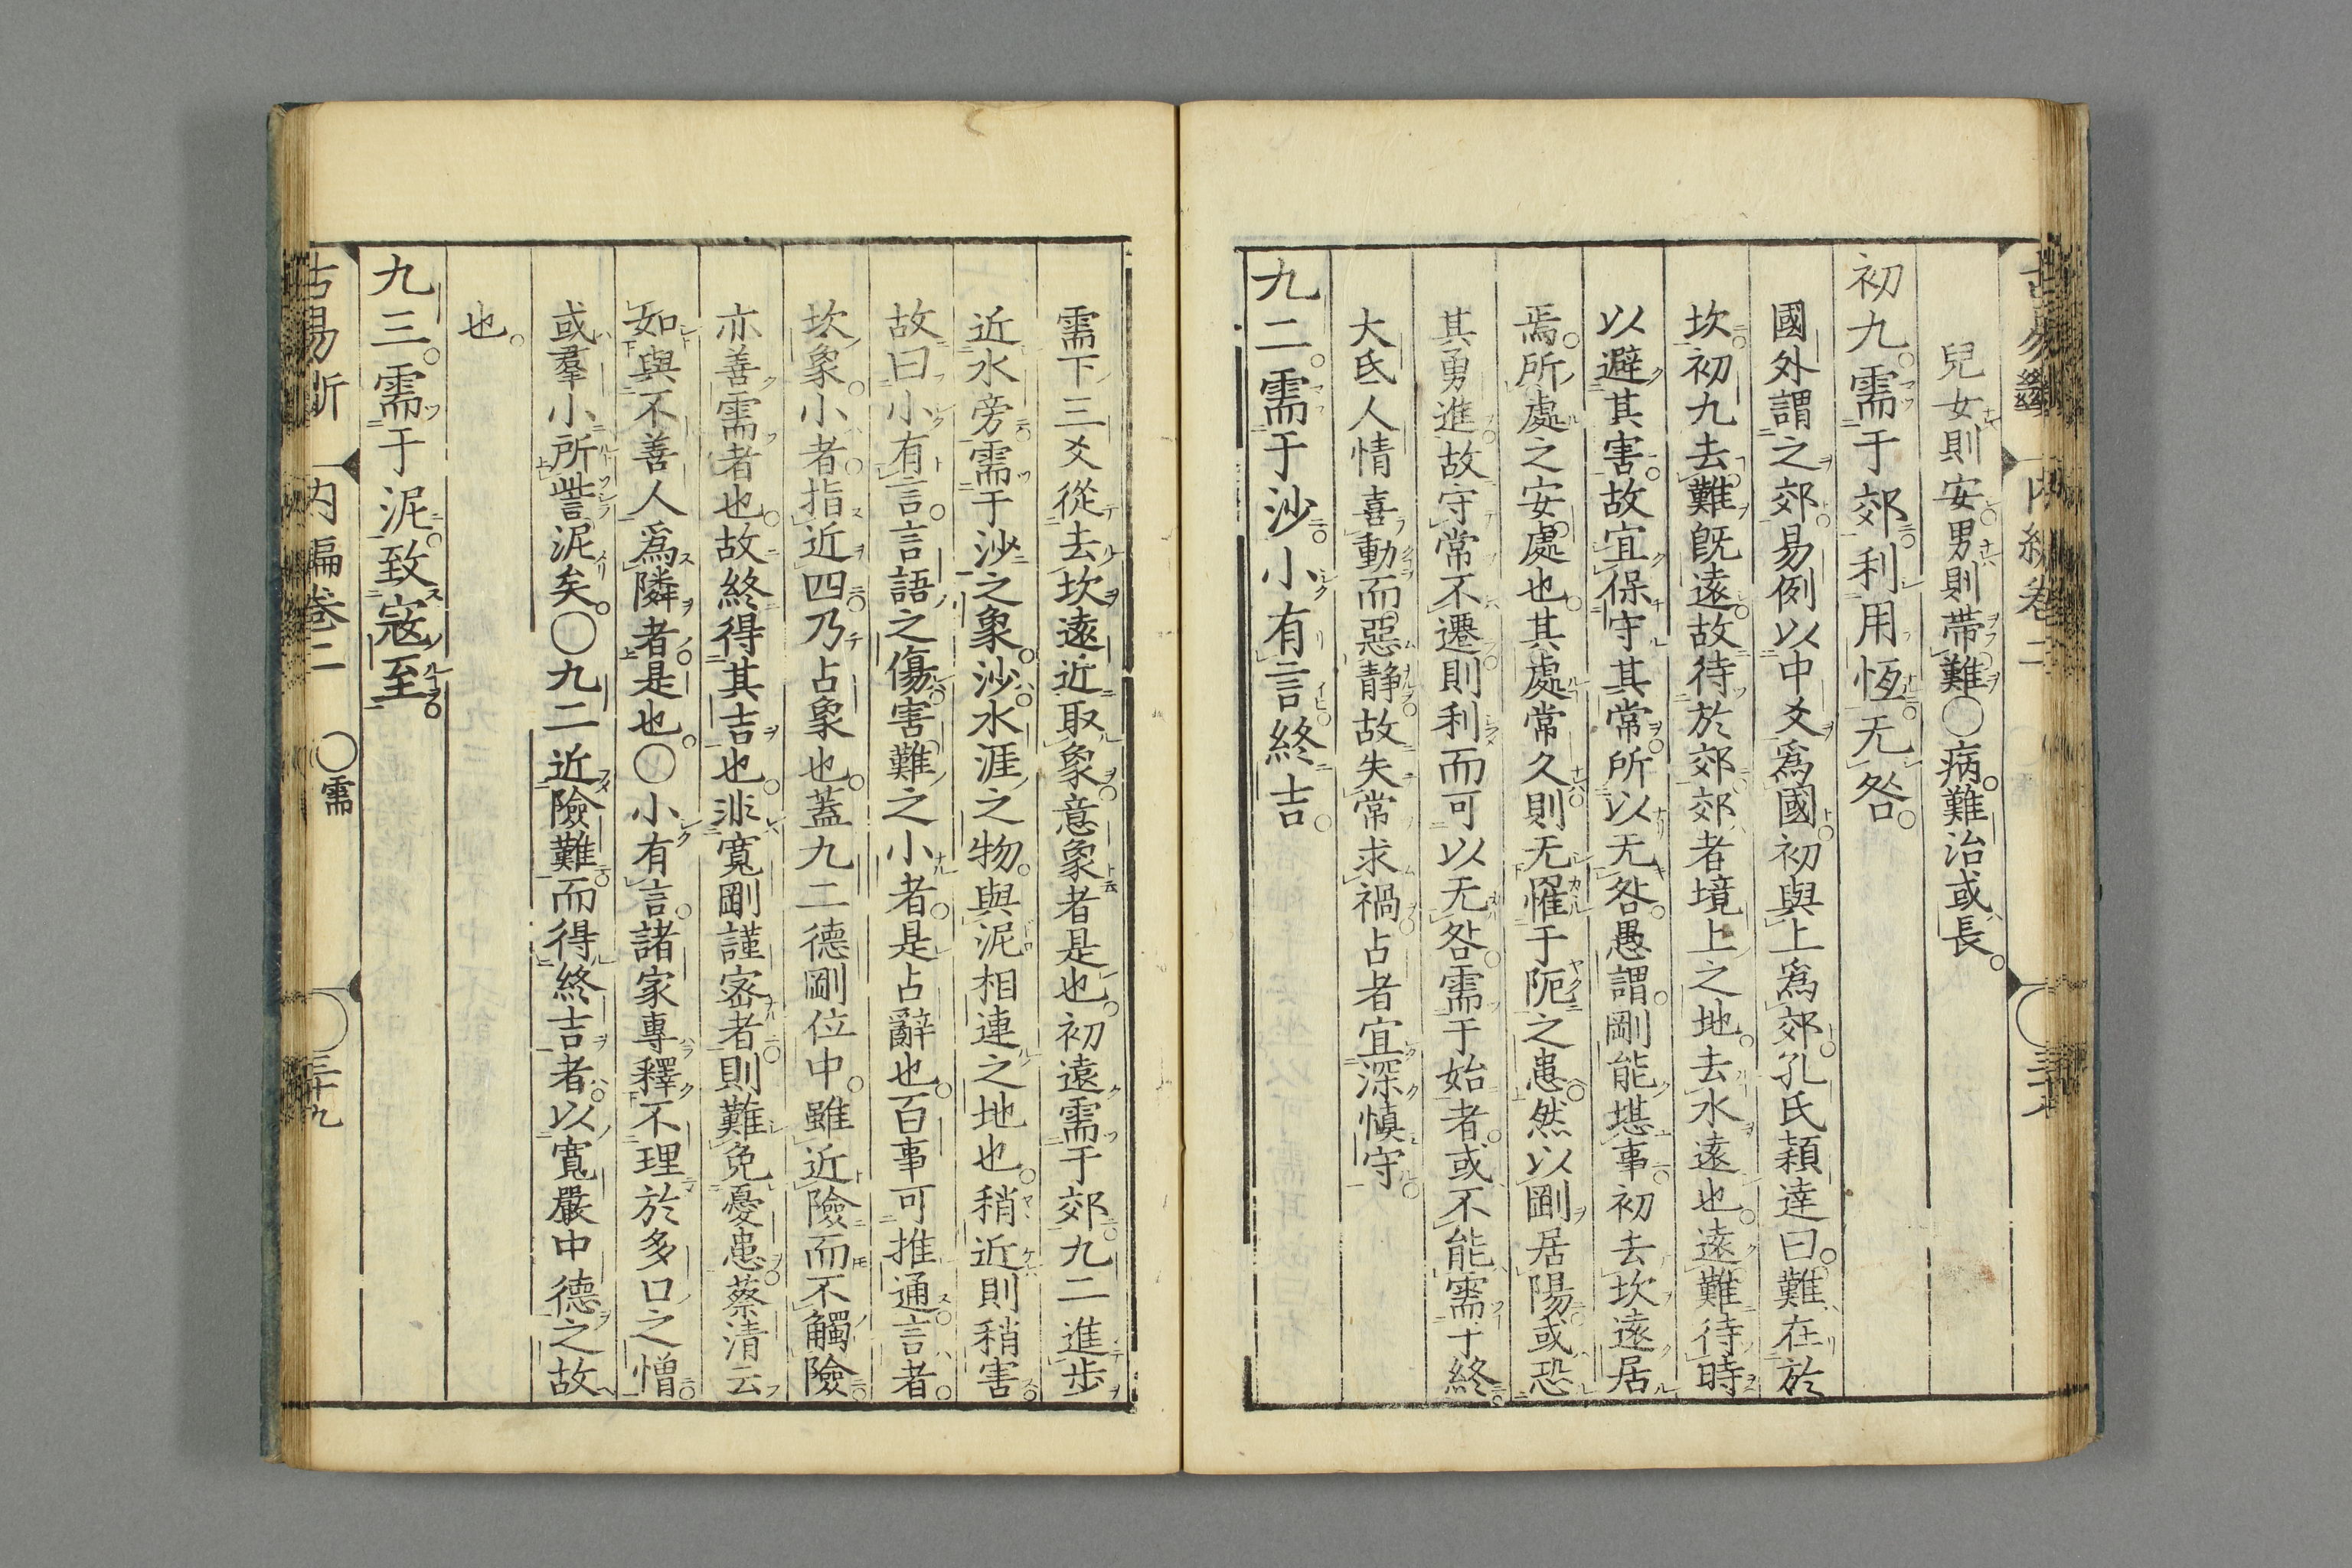 兒女則安男則帶難○病難治或長
初九需于郊利用恆无咎
國外謂之郊易例以中爻爲國初與上爲郊孔氏穎達曰難在於
坎初九去難旣遠故待於郊郊者境上之地去水遠也遠難待時
以避其害故宜保守其常所以无咎愚謂剛能堪事初去坎遠居
焉所處之安處也其處常久則无罹于阨之患然以剛居陽或恐
其勇進故守常不遷則利而可以无咎需于始者或不能需于終
大氐人情喜動而惡静故失常求禍占者宜深愼守
九二需于沙小有言終吉
需下三爻從去坎遠近取象意象者是也初遠需于郊九二進步
近水旁需于沙之象沙水涯之物與泥相連之地也稍近則稍害
故曰小有言言語之傷害難之小者是占辭也百事可推通言者
坎象小者指近四乃占象也蓋九二德剛位中雖近險而不觸險
亦善需者也故終得其吉也非寬剛謹密者則難免憂患蔡清云
如與不善人爲隣者是也○小有言諸家專釋不理於多口之憎
或羣小所訾泥矣○九二近險難而得終吉者以寬嚴中德之故
也
九三需于泥致寇至
古易斷 内編卷二 ○需 ○三十九